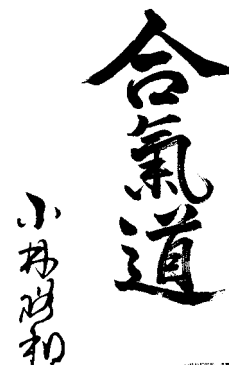 合氣道
小林裕和